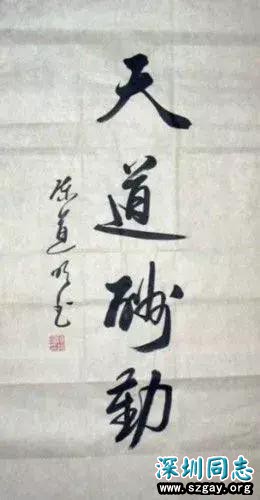 天道酬勤
陈道明书
深圳同志
www.szgay.org